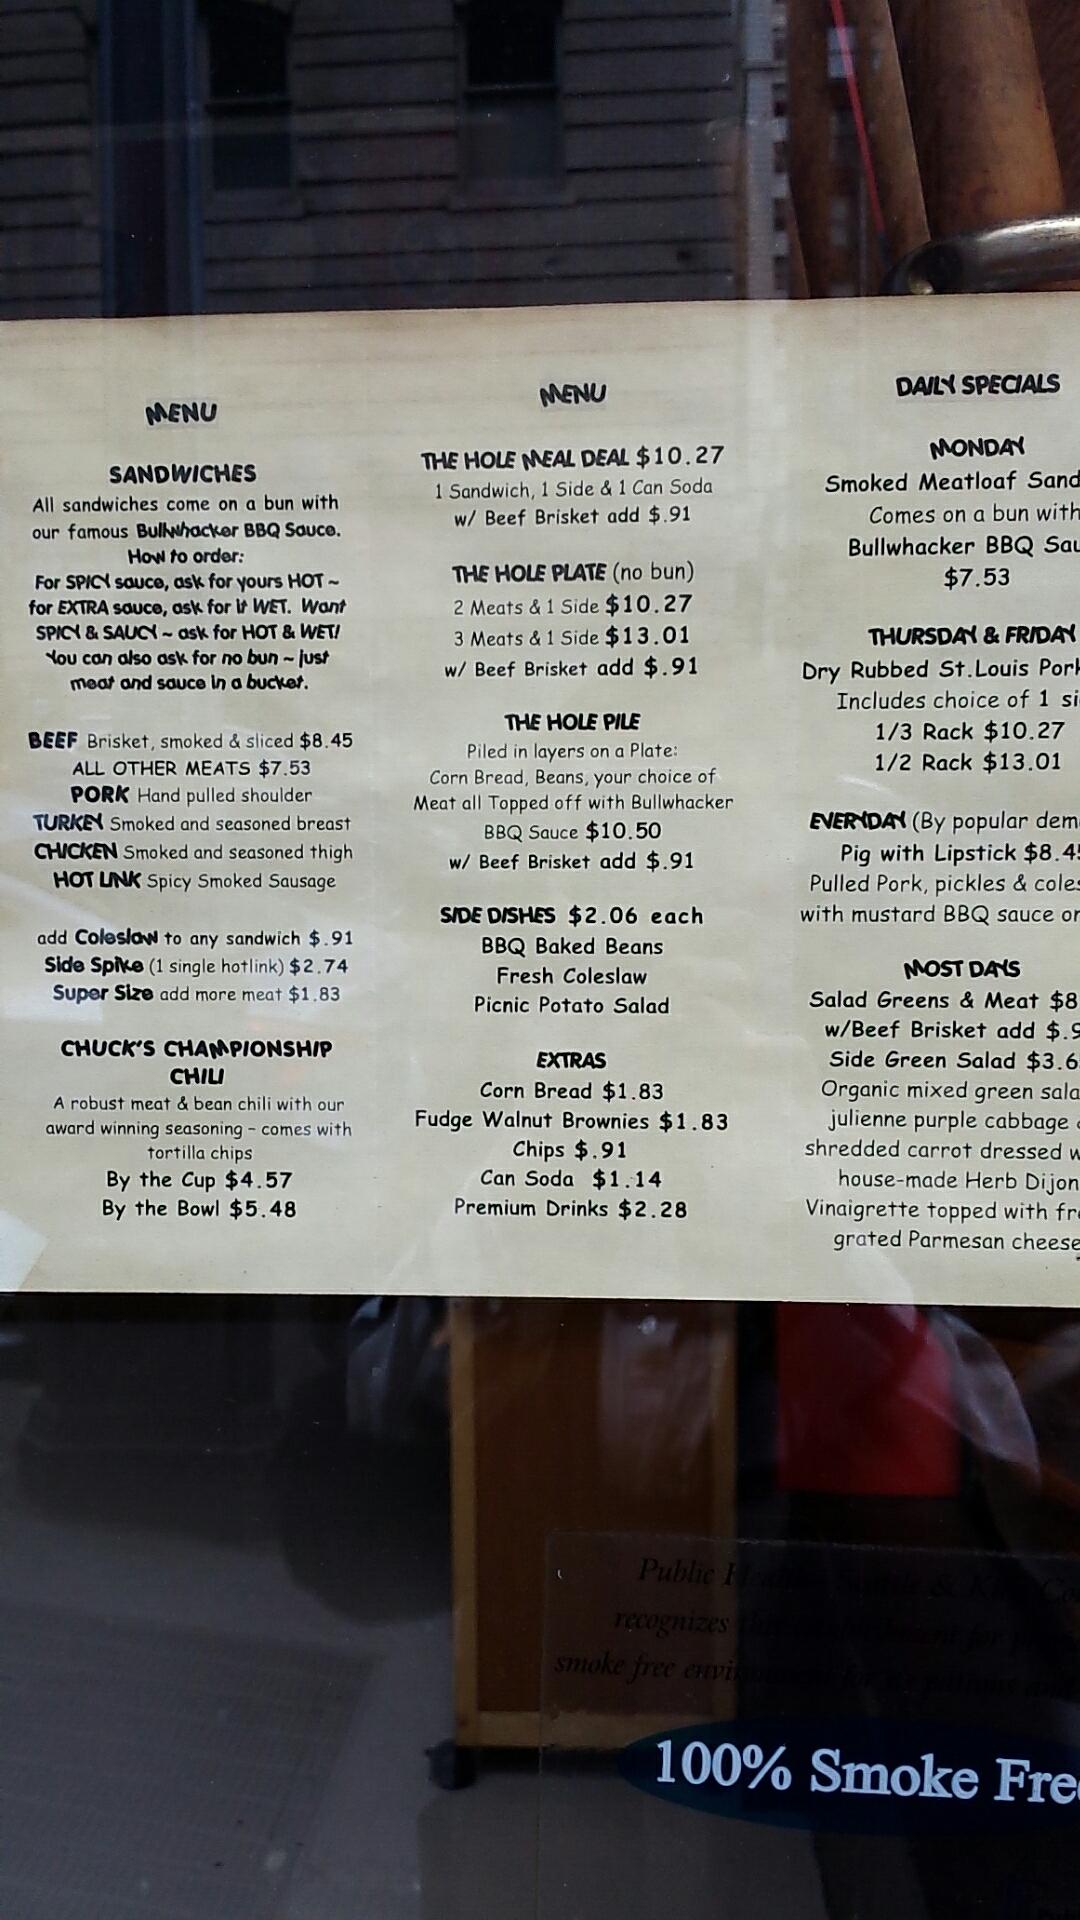 MENU
SANDWICHES
All sandwiches come on a bun with
our famous Bullwhacker BBQ Sauce.
How to order:
For SPICY sauce, ask for yours HOT ~
for EXTRA sauce, ask for it WET. Want
SPICY & SAUCY ~ ask for HOT & WET!
You can also ask for no bun ~ just
meat and sauce in a bucket.
BEEF Brisket, smoked & sliced $8.45
ALL OTHER MEATS $7.53
PORK Hand pulled shoulder
TURKEY Smoked and seasoned breast
CHICKEN Smoked and seasoned thigh
HOT LINK Spicy Smoked Sausage
add Coleslaw to any sandwich $.91
Side Spike (1 single hotlink) $2.74
Super Size add more meat $1.83
CHUCK'S CHAMPIONSHIP
CHILI
A robust meat & bean chili with our
award winning seasoning - comes with
tortilla chips
By the Cup $4.57
By the Bowl $5.48
MENU
THE HOLE MEAL DEAL $10.27
1 Sandwich, 1 Side & 1 Can Soda
w/ Beef Brisket add $.91
THE HOLE PLATE (no bun)
2 Meats & 1 Side $10.27
3 Meats & 1 Side $13.01
w/ Beef Brisket add $.91
THE HOLE PILE
Piled in layers on a Plate:
Corn Bread, Beans, your choice of
Meat all Topped off with Bullwhacker
BBQ Sauce $10.50
w/ Beef Brisket add $.91
SIDE DISHES $2.06 each
BBQ Baked Beans
Fresh Coleslaw
Picnic Potato Salad
EXTRAS
Corn Bread $1.83
Fudge Walnut Brownies $1.83
Chips $.91
Can Soda $1.14
Premium Drinks $2.28
DAILY SPECIALS
MONDAY
Smoked Meatloaf Sand
Comes on a bun with
Bullwhacker BBQ Sau
$7.53
THURSDAY & FRIDAY
Dry Rubbed St.Louis Pork
Includes choice of 1 si
1/3 Rack $10.27
1/2 Rack $13.01
EVERYDAY (By popular dem
Pig with Lipstick $8.45
Pulled Pork, pickles & coles
with mustard BBQ sauce on
MOST DAYS
Salad Greens & Meat $8
w/Beef Brisket add $.9
Side Green Salad $3.6
Organic mixed green sala
julienne purple cabbage &
shredded carrot dressed w
house-made Herb Dijon
Vinaigrette topped with fre
grated Parmesan cheese
Public Health Seattle & King Co
recognizes this establishment for
smoke free environment for its patrons and
100% Smoke Free